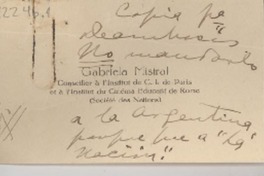 224.1
Copia pa
No mandarlo
Gabriela Mistral
Conseiller à l'Institut de C. I. de Paris
et à l'Institut du Cinéma Educatif de Rome
(Société des Nations)
a la Argentina
porque va a "La
Nación".